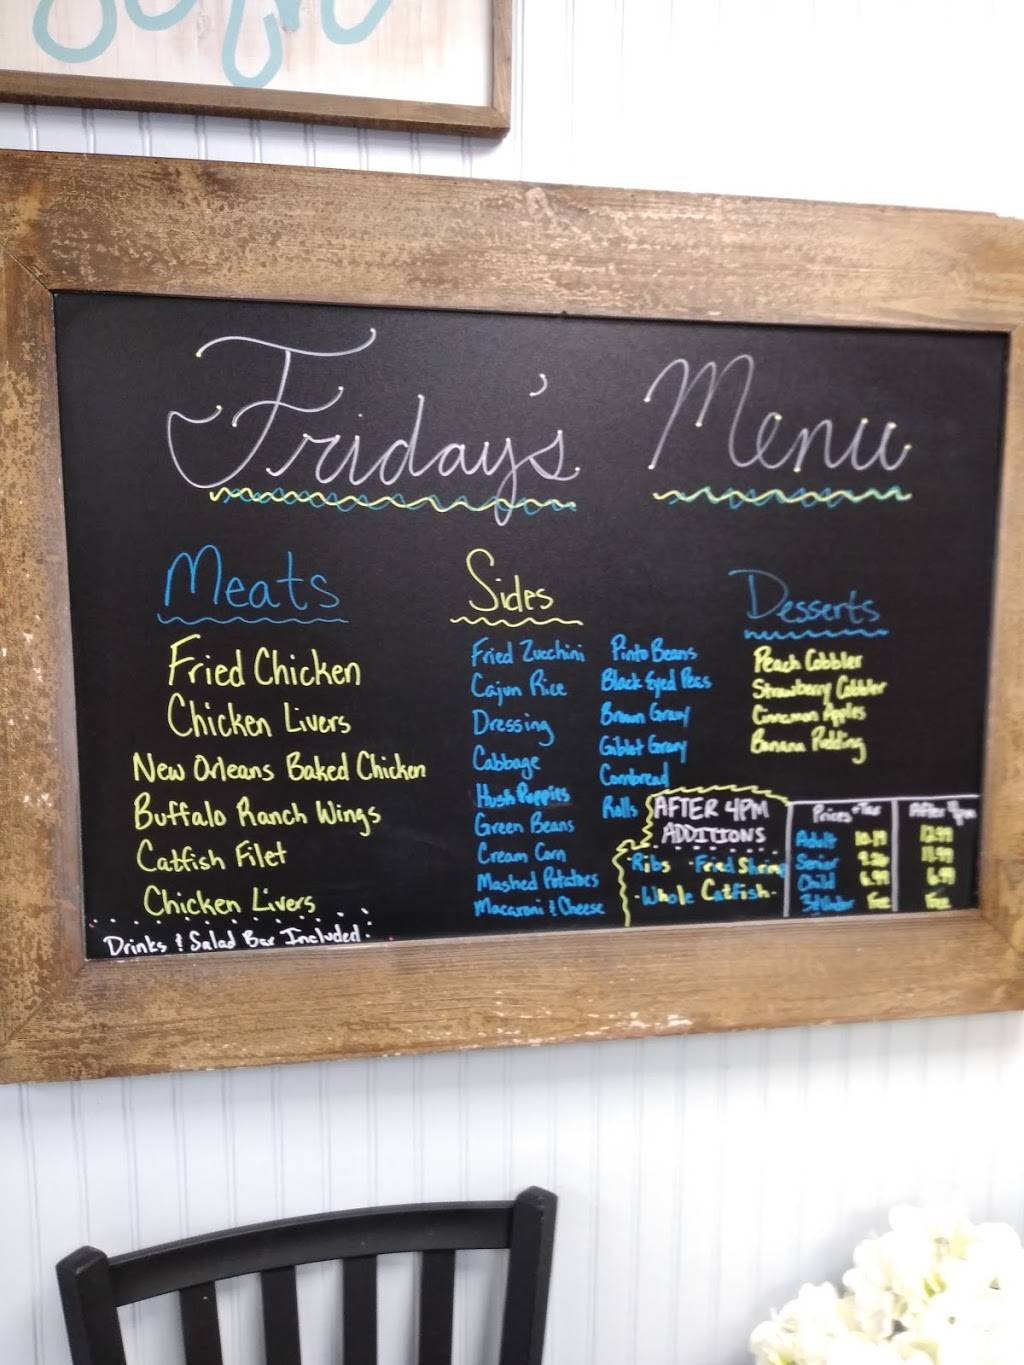 Friday's Menu
Meats
Fried Chicken
Chicken Livers
New Orleans Baked Chicken
Buffalo Ranch Wings
Catfish Filet
Chicken Livers
Drinks & Salad Bar Included
Sides
Fried Zucchini
Cajun Rice
Dressing
Cabbage
Hush Puppies
Green Beans
Cream Corn
Mashed Potatoes
Macaroni & Cheese
Pinto Beans
Black Eyed Peas
Brown Gravy
Giblet Gravy
Cornbread
Rolls
Desserts
Peach Cobbler
Strawberry Cobbler
Cinnamon Apples
Banana Pudding
AFTER 4PM
ADDITIONS
Ribs - Fried Shrimp
- Whole Catfish -
Prices + Tax After 4pm
Adult 10.19 12.99
Senior 11.99
Child 6.99 6.99
3 & Under Free Free